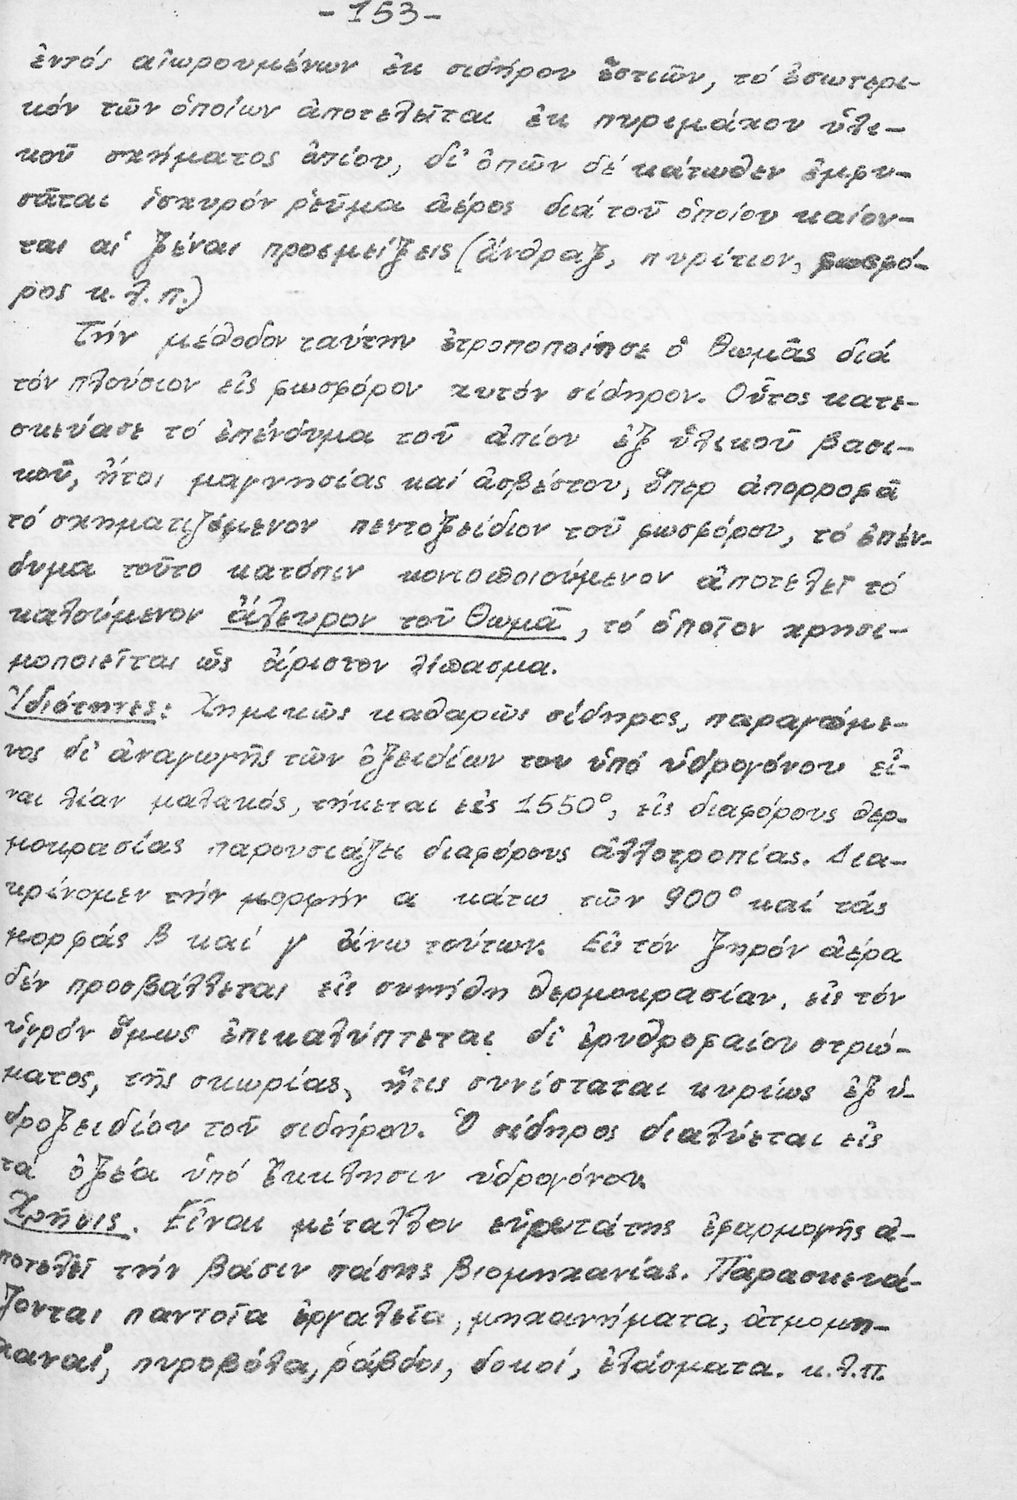 - 153 -
ἐντός αἰωρουμένων ἐκ σιδήρου ἑστιῶν, τό ἐσωτερι-
κόν τῶν ὁποίων ἀποτελεῖται ἐκ πυριμάχου ὑλι-
κοῦ σχήματος ἀπίου, δι' ὀπῶν δέ κάτωθεν ἐμφυ-
σᾶται ἰσχυρόν ῥεῦμα ἀέρος διά τοῦ ὁποίου καίον-
ται αἱ ξέναι προσμείξεις (ἄνθραξ, πυρίτιον, φωσφό-
ρος κ.λ.π.)
Τήν μέθοδον ταύτην ἐτροποποίησε ὁ Θωμᾶς διά
τόν πλούσιον εἰς φωσφόρον χυτόν σίδηρον. Οὗτος κατε-
σκεύασε τό ἐπένδυμα τοῦ ἀπίου ἐξ ὑλικοῦ βασι-
κοῦ, ἤτοι μαγνησίας καί ἀσβέστου, ὅπερ ἀπορροφᾶ
τό σχηματιζόμενον πεντοξείδιον τοῦ φωσφόρου, τό ἐπέν-
δυμα τοῦτο κατόπιν κονιοποιούμενον ἀποτελεῖ τό
καλούμενον ἄλευρον τοῦ Θωμᾶ, τό ὁποῖον χρησι-
μοποιεῖται ὡς ἄριστον λίπασμα.
Ἰδιότητες: Χημικῶς καθαρῶς σίδηρος, παραγόμε-
νος δι' ἀναγωγῆς τῶν ὀξειδίων του ὑπό ὑδρογόνου εἶ-
ναι λίαν μαλακός, τήκεται εἰς 1550°, εἰς διαφόρους θερ-
μοκρασίας παρουσιάζει διαφόρους ἀλλοτροπίας. Δια-
κρίνομεν τήν μορφήν α κάτω τῶν 900° καί τάς
μορφάς β καί γ ἄνω τούτων. Εἰς τόν ξηρόν ἀέρα
δέν προσβάλλεται εἰς συνήθη θερμοκρασίαν, εἰς τόν
ὑγρόν ὅμως ἐπικαλύπτεται δι' ἐρυθροφαίου στρώ-
ματος, τῆς σκωρίας, ἥτις συνίσταται κυρίως ἐξ ὑ-
δροξειδίου τοῦ σιδήρου. Ὁ σίδηρος διαλύεται εἰς
τά ὀξέα ὑπό ἔκκλησιν ὑδρογόνου.
Χρῆσις. Εἶναι μέταλλον εὐρυτάτης ἐφαρμογῆς ἀ-
ποτελεῖ τήν βάσιν πάσης βιομηχανίας. Παρασκευά-
ζονται παντοῖα ἐργαλεῖα, μηχανήματα, ἀτμομη-
χαναί, πυροβόλα, ῥάβδοι, δοκοί, ἐλάσματα. κ.λ.π.